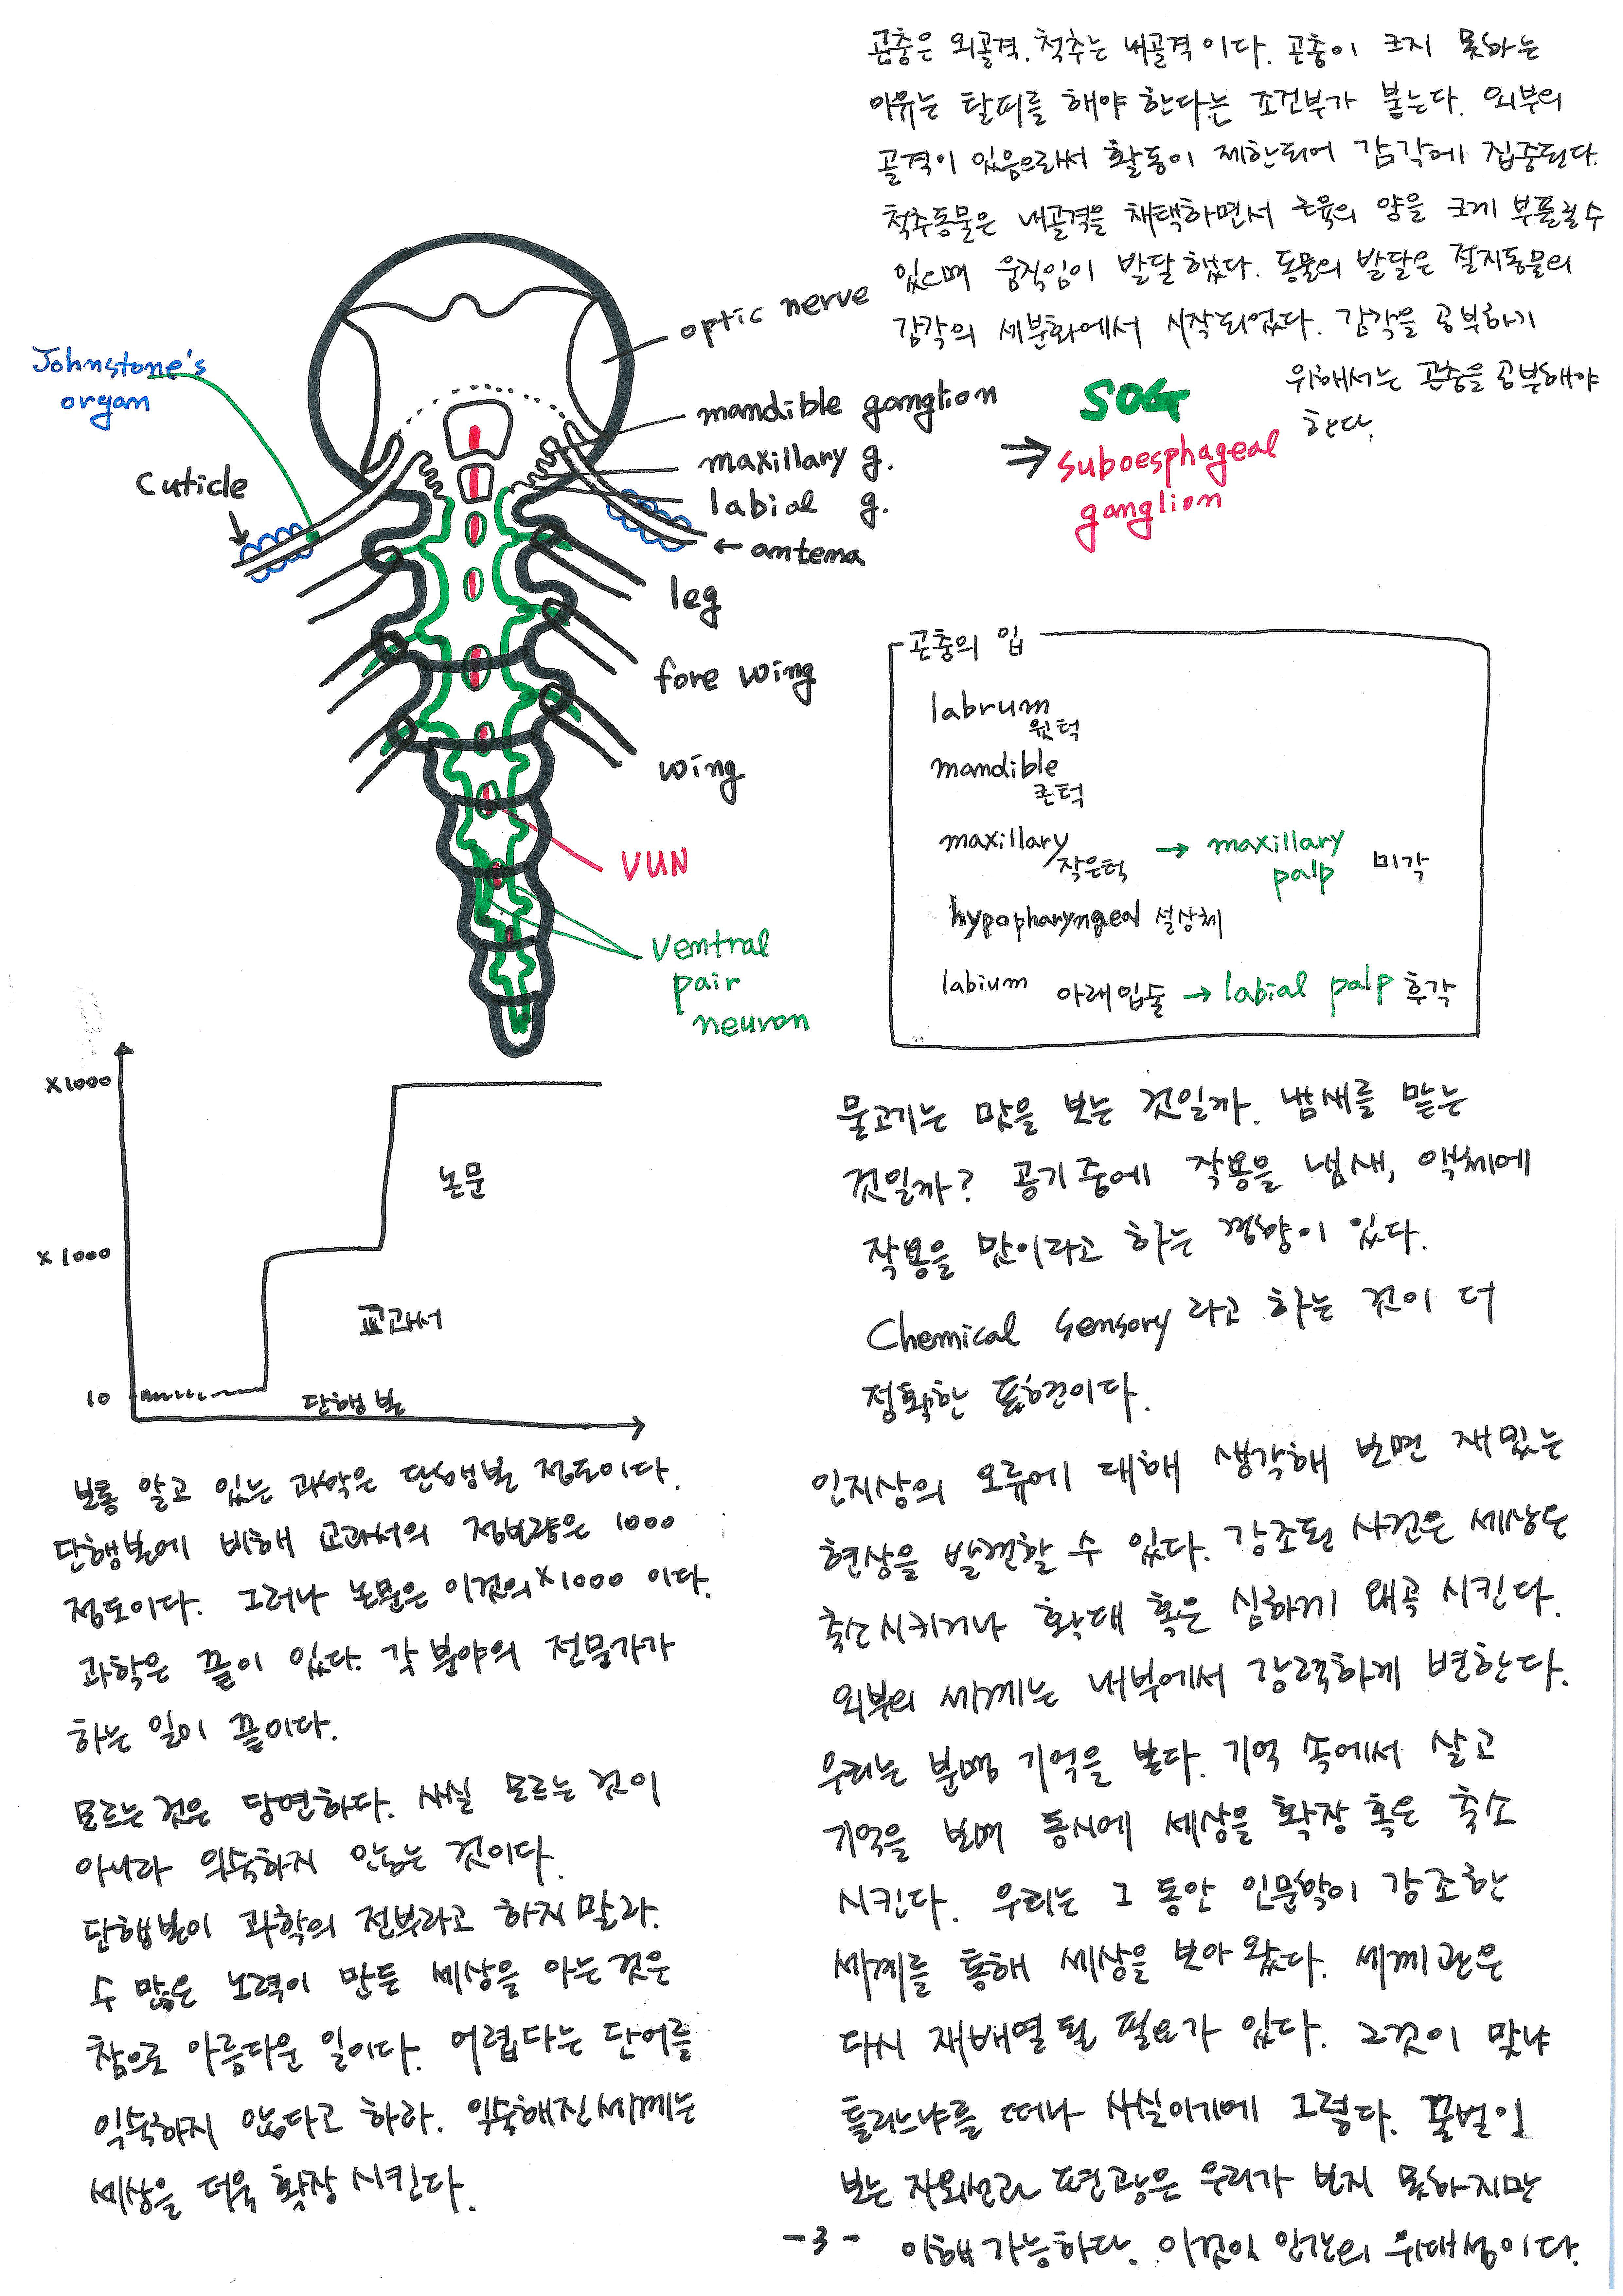 곤충은 외골격, 척추는 내골격이다. 곤충이 크지 못하는
이유는 탈피를 해야 한다는 조건부가 붙는다. 외부의
골격이 있음으로써 활동이 제한되어 감각에 집중된다.
척추동물은 내골격을 채택하면서 근육의 양을 크게 부풀릴 수
있으며 움직임이 발달했다. 동물의 발달은 절지동물의
감각의 세분화에서 시작되었다. 감각을 공부하기
위해서는 곤충을 공부해야
한다.
optic nerve
Johnstone's
organ
cuticle
mandible ganglion
maxillary g.
labial g.
← antena
⇒ SOG
suboesphageal
ganglion
leg
fore wing
wing
VUN
ventral
pair
neuron
곤충의 입
labrum
윗턱
mandible
큰턱
maxillary
작은턱
→ maxillary
palp
미각
hypopharyngeal 설상체
labium 아래입술 → labial palp 후각
x1000
논문
x1000
교과서
10
단행본
보통 알고 있는 과학은 단행본 정도이다.
단행본에 비해 교과서의 정보량은 1000
정도이다. 그러나 논문은 이것의 x1000 이다.
과학은 끝이 있다. 각 분야의 전문가가
하는 일이 끝이다.
모르는 것은 당연하다. 사실 모르는 것이
아니라 익숙하지 않는 것이다.
단행본이 과학의 전부라고 하지 말라.
수 많은 노력이 만든 세상을 아는 것은
참으로 아름다운 일이다. 어렵다는 단어를
익숙하지 않다고 하라. 익숙해진 세계는
세상을 더욱 확장 시킨다.
물고기는 맛을 보는 것일까. 냄새를 맡는
것일까? 공기 중에 작용을 냄새, 액체에
작용을 맛이라고 하는 경향이 있다.
Chemical sensory 라고 하는 것이 더
정확한 표현이다.
인지상의 오류에 대해 생각해 보면 재밌는
현상을 발견할 수 있다. 강조된 사건은 세상을
축소시키거나 확대 혹은 심하게 왜곡 시킨다.
외부의 세계는 내부에서 강력하게 변한다.
우리는 분명 기억을 본다. 기억 속에서 살고
기억을 보며 동시에 세상을 확장 혹은 축소
시킨다. 우리는 그 동안 인문학이 강조한
세계를 통해 세상을 보아 왔다. 세계관은
다시 재배열 될 필요가 있다. 그것이 맞냐
틀리느냐를 떠나 사실이기에 그렇다. 꿀벌이
보는 자외선과 편광은 우리가 보지 못하지만
이해 가능하다. 이것이 인간의 위대성이다.
- 3 -